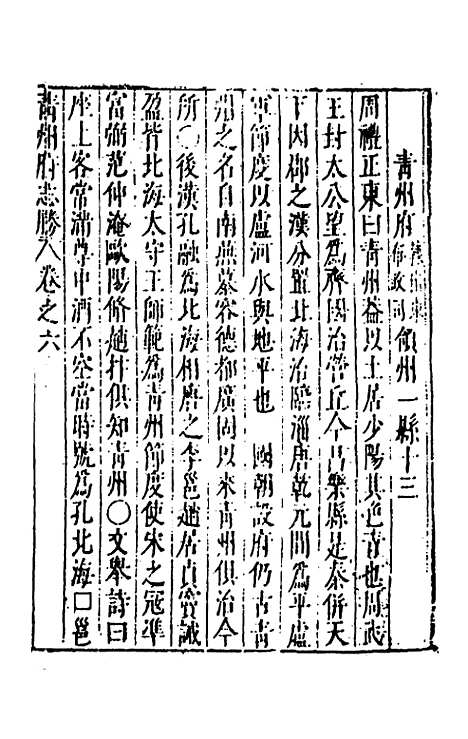 青州府 領州一縣十三
周禮正東曰青州益以土居少陽其色青也周武
王封太公望為齊國治營丘今昌樂縣是秦併天
下因郡之漢分置北海治臨淄唐乾元間為平盧
軍節度以盧河水與地平也 國朝設府仍古青
州之名自南燕慕容德都廣固以來青州俱治今
所〇後漢孔融為北海相唐之李邕趙居貞竇誡
盈皆北海太守王師範為青州節度使宋之冠準
富弼范仲淹歐陽脩趙抃俱知青州〇文舉詩曰
座上客常滿尊中酒不空當時號為孔北海□邕
青州府志勝 卷之六